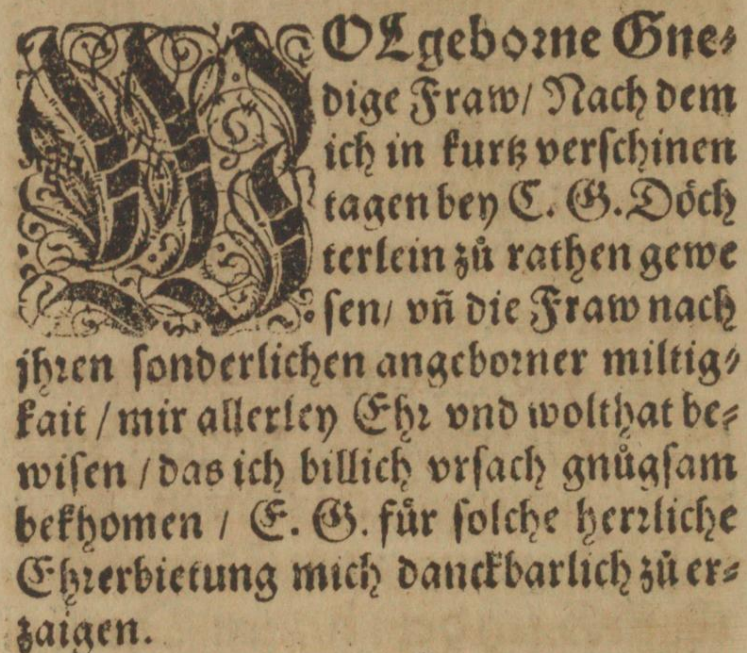 WOLgeborne Gne⸗
dige Fraw/ Nach dem
ich in kurtz verschinen
tagen bey E. G. Döch
terlein zů rathen gewe
sen/ vñ die Fraw nach
jhren sonderlichen angeborner miltig⸗
kait / mir allerley Ehr vnd wolthat be⸗
wisen / das ich billich vrsach gnůgsam
bekhomen / E. G. für solche herrliche
Ehrerbietung mich danckbarlich zů er⸗
zaigen.